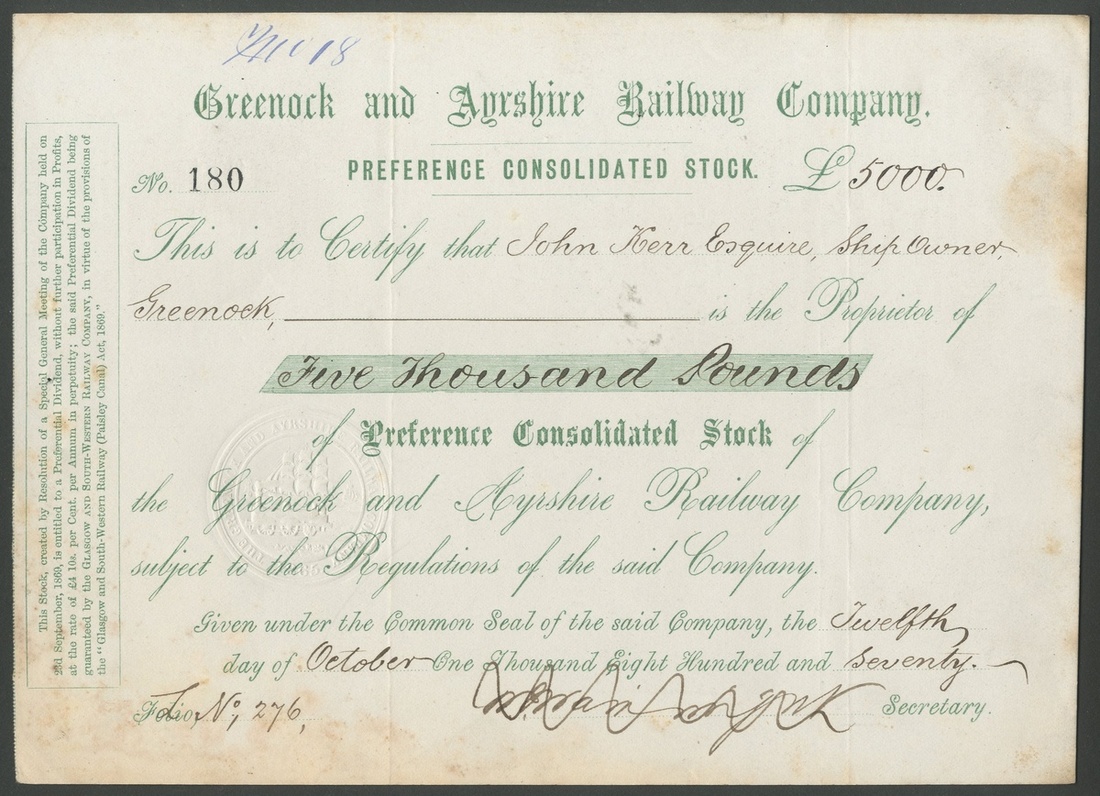 Greenock and Ayrshire Railway Company.
PREFERENCE CONSOLIDATED STOCK.
No. 180
£ 5000.
This is to Certify that John Kerr Esquire, Ship Owner,
Greenock, is the Proprietor of
Five Thousand Pounds
of Preference Consolidated Stock of
the Greenock and Ayrshire Railway Company,
subject to the Regulations of the said Company.
Given under the Common Seal of the said Company, the Twelfth
day of October One Thousand Eight Hundred and Seventy.
Folio, No, 276,
Secretary.
This Stock, created by Resolution of a Special General Meeting of the Company held on
22d September, 1869, is entitled to a Preferential Dividend, without further participation in Profits,
at the rate of £4 10s. per Cent. per Annum in perpetuity; the said Preferential Dividend being
guaranteed by the GLASGOW AND SOUTH-WESTERN RAILWAY COMPANY, in virtue of the provisions of
the "Glasgow and South-Western Railway (Paisley Canal) Act, 1869."